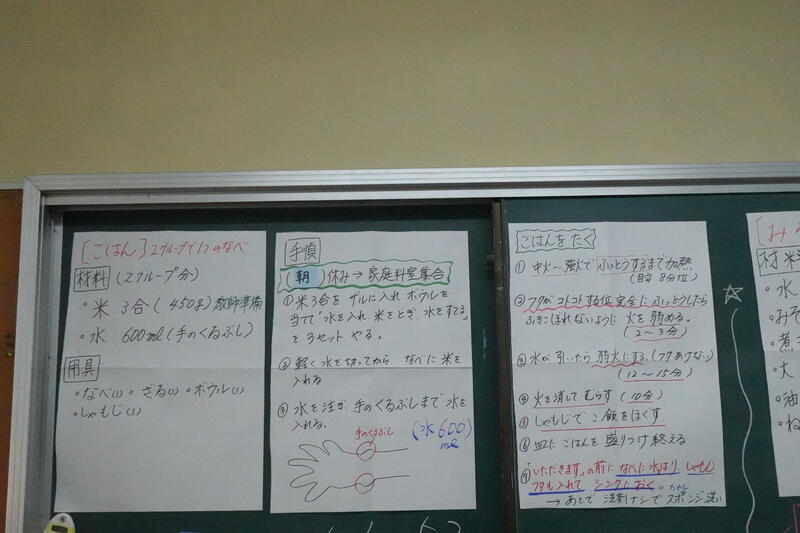 [ごはん] 2グループで1つのなべ
材料 (2グループ分)
・米 3合(450g) 教師準備
・水 600ml (手のくるぶし)
用具
・なべ(1) ・ざる(1) ・ボウル(1)
・しゃもじ(1)
手順
(朝)休み→家庭科室集合
①米3合を ザルに入れ ボウルを
当てて「水を入れ 米をとぎ、水をすてる」
を3セット やる。
②軽く水を切ってから なべに米を
入れる
③水を注ぎ、手のくるぶしまで水を
入れる。
手のくるぶし
(水600
ml)
ごはんをたく
① 中火〜強火で ふっとうするまで加熱
(目安 8分位)
②フタがコトコトする位完全にふっとうしたら
ふきこぼれないように 火を弱める。
(2〜3分)
③水が引いたら弱火にする。(フタあけない)
(12〜15分)
④火を消してむらす (10分)
⑤しゃもじでご飯をほぐす
⑥皿にごはんを盛りつけ終える
⑦「いただきます」の前になべに水はり、しゃもじ
フタも入れて シンクにおく。
→あとで 洗剤ナシでスポンジ洗い
[み
材料
・水
・みそ
・煮
・大
・油
・ね